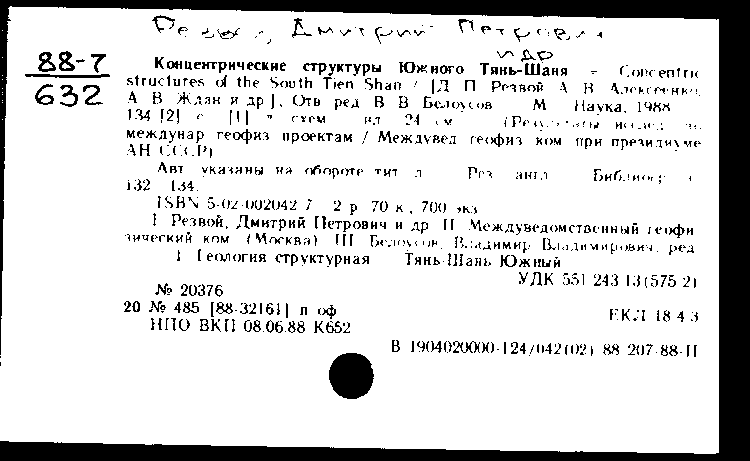 Резвой, Дмитрий Петрович
и др
88-7
632
Концентрические структуры Южного Тянь-Шаня = Concentric
structures of the South Tien Shan / [Д. П. Резвой, А. В. Алексеенко,
А. В. Ждан и др.]; Отв. ред. В. В. Белоусов. М. Наука, 1988
134 [2] с. [1] л. схем. ил. 24 см. (Результаты исслед. по
междунар геофиз проектам / Междувед геофиз ком при президиуме
АН СССР)
Авт указаны на обороте тит л Рез англ Библиогр с
132 134.
ISBN 5-02-002042-7 2 р 70 к, 700 экз
I Резвой, Дмитрий Петрович и др II Междуведомственный геофи
зический ком (Москва) III Белоусов, Владимир Владимирович, ред
1 Геология структурная Тянь-Шань Южный
УДК 551 243 13(575 2)
№ 20376
20 № 485 [88-32161] п оф
ЕКЛ 18 4 3
НПО ВКП 08.06.88 К652
В 1904020000-124/042(02) 88 207-88-II